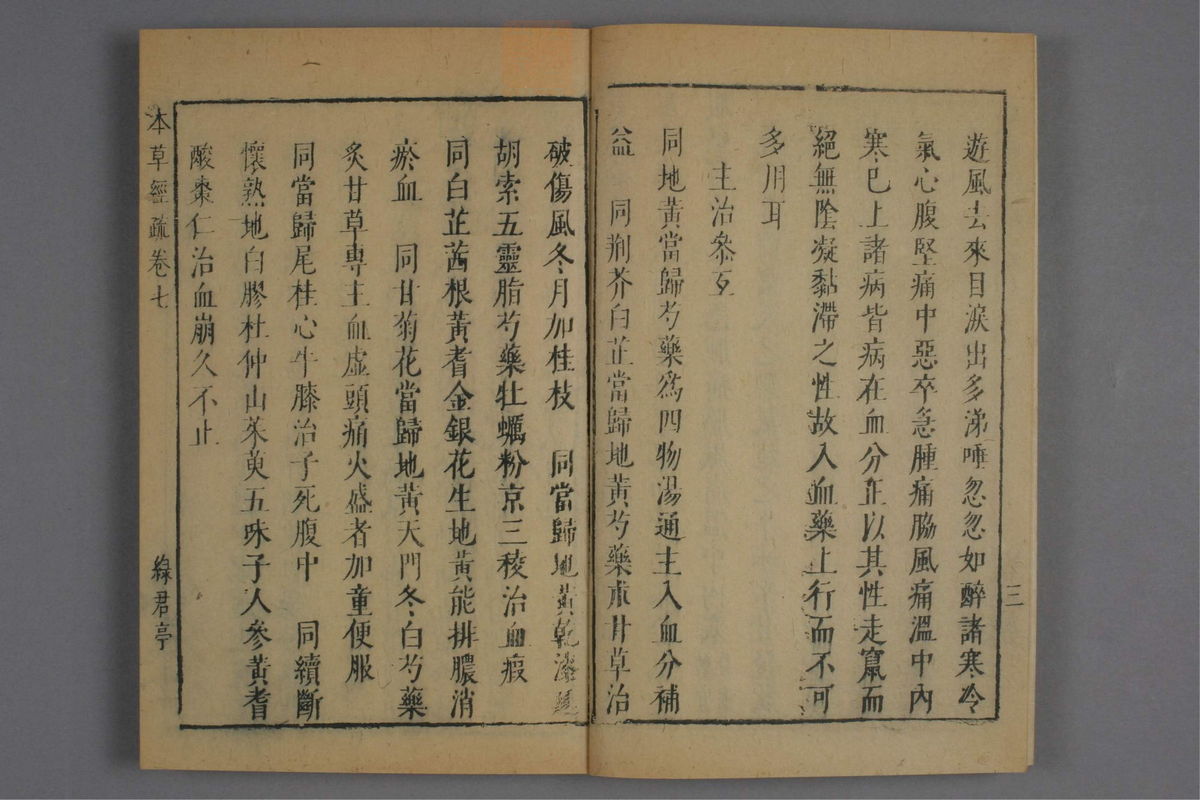 遊風去來目淚出多涕唾忽忽如醉諸寒冷
氣心腹堅痛中惡卒急腫痛脇風痛溫中內
寒已上諸病皆病在血分正以其性走竄而
絕無陰凝黏滯之性故入血藥上行而不可
多用耳
主治叅互
同地黃當歸芍藥爲四物湯通主入血分補
益 同荆芥白芷當歸地黃芍藥朮甘草治
三
破傷風冬月加桂枝 同當歸地黃乾漆延
胡索五靈脂芍藥牡蠣粉京三稜治血瘕
同白芷茜根黃耆金銀花生地黃能排膿消
瘀血 同甘菊花當歸地黃天門冬白芍藥
炙甘草專主血虛頭痛火盛者加童便服
同當歸尾桂心牛膝治子死腹中 同續斷
懷熟地白膠杜仲山茱萸五味子人參黃耆
酸棗仁治血崩久不止
本草經疏卷七
綠君亭